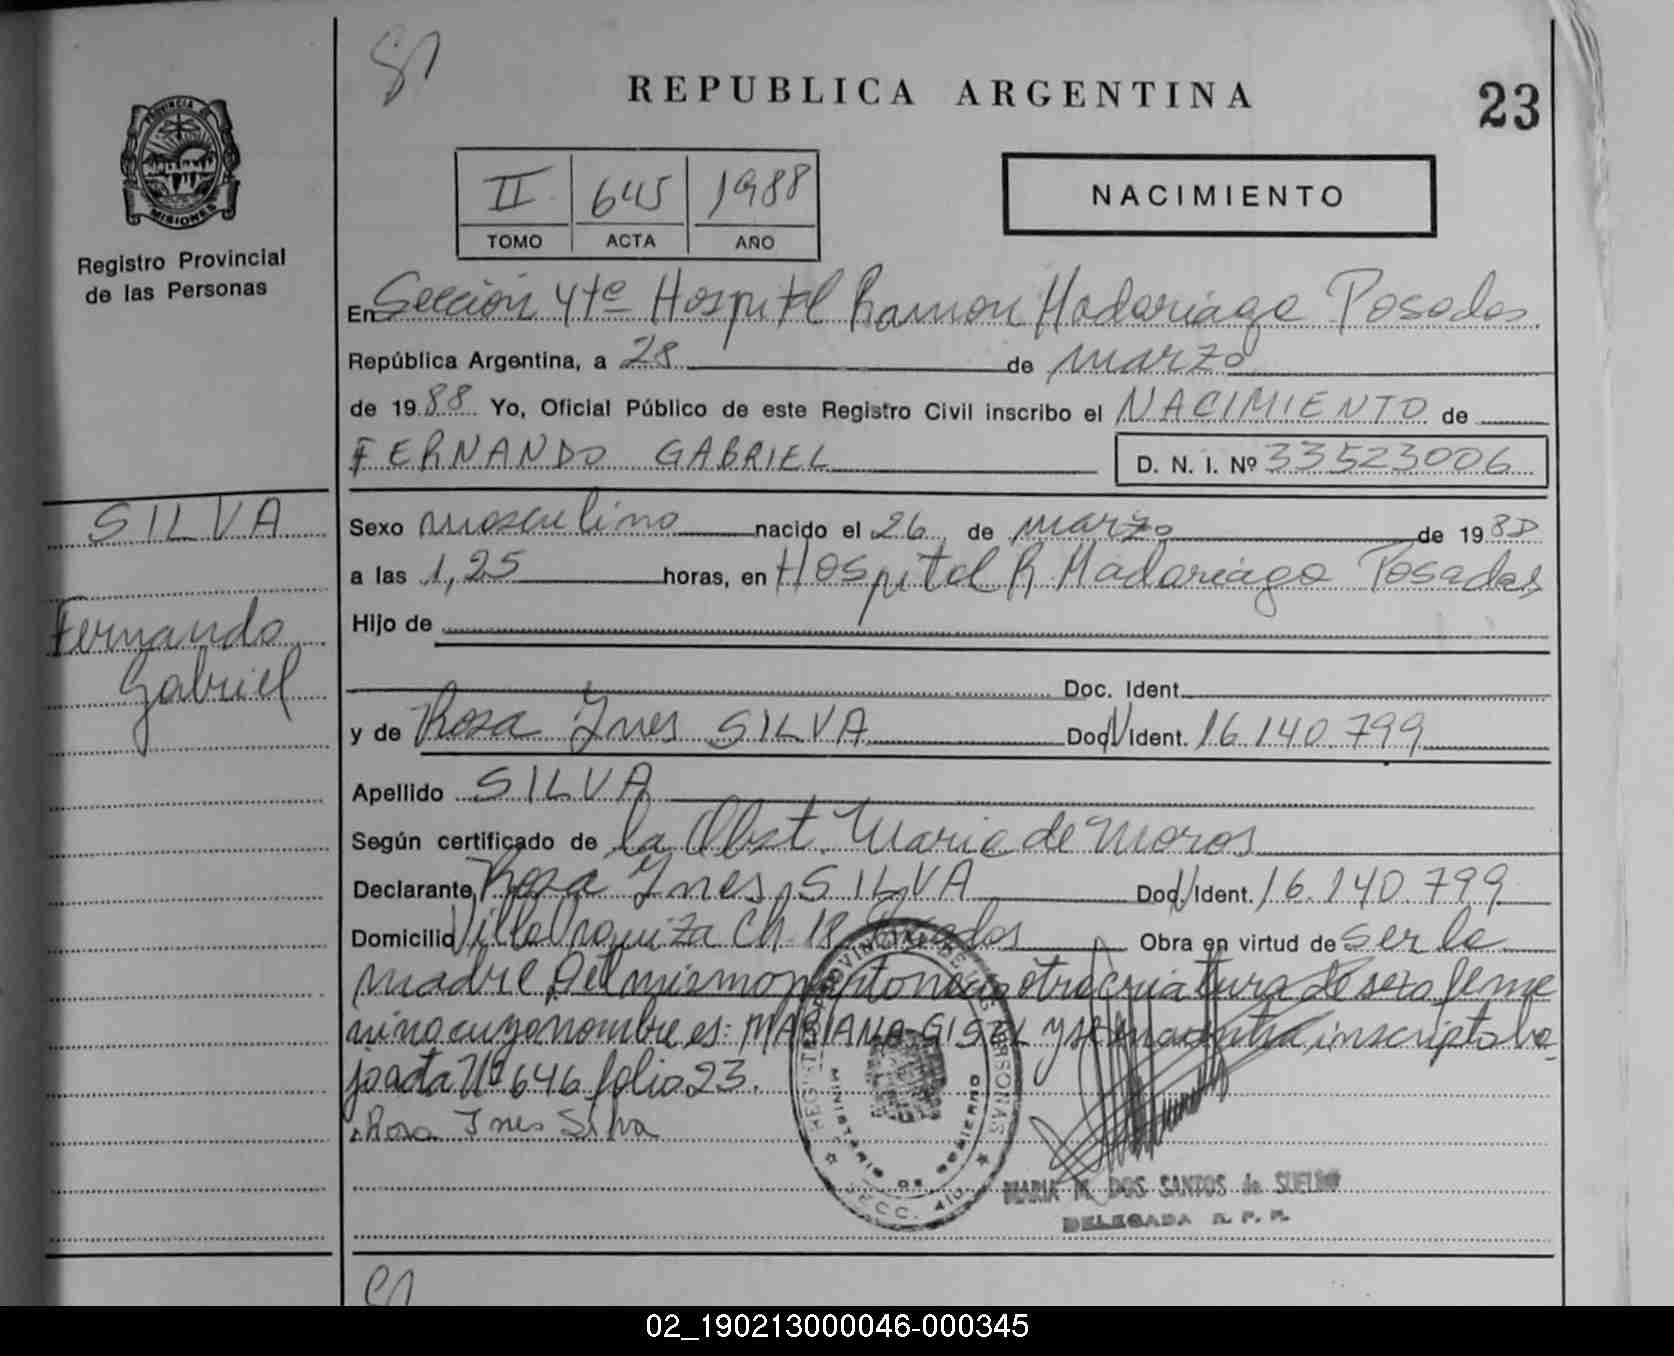 REPUBLICA ARGENTINA
23
PROVINCIA DE
MISIONES
Registro Provincial
de las Personas
II 645 1988
TOMO ACTA AÑO
NACIMIENTO
En Sección 4ta Hospital Ramon Madariaga Posadas
República Argentina, a 28 de marzo
de 1988 Yo, Oficial Público de este Registro Civil inscribo el NACIMIENTO de
FERNANDO GABRIEL D. N. I. Nº 33523006
SILVA
Fernando
Gabriel
Sexo masculino nacido el 26 de marzo de 1988
a las 1,25 horas, en Hospital R Madariaga Posadas
Hijo de
Doc. Ident.
y de Rosa Ynes SILVA Doc. Ident. 16.140.799
Apellido SILVA
Según certificado de la Obst. Maria de Moros
Declarante Rosa Ynes SILVA Doc. Ident. 16.140.799
Domicilio Villa Urquiza Ch 18 Posadas Obra en virtud de ser la
madre Del mismo parto nacio otra criatura de sexo feme
nino cuyo nombre es: MARIANA GISEL y se encuentra inscripto ba
jo acta Nº 646 folio 23.
Rosa Ines Silva
REGISTRO PROVINCIAL DE LAS PERSONAS
MINISTERIO DE GOBIERNO
MARIA M. DOS SANTOS de SUELDO
DELEGADA R. P. P.
02_190213000046-000345